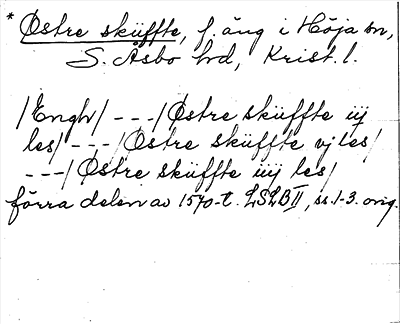 * Østre sküffte, f. äng i Höja sn,
S. Åsbo hd, Krist. l.
/Engh/ ---/Østre sküffte iij
les/ ---/Østre sküffte vj les/
---/Østre sküffte iiij les/
förra delen av 1570-t. LSLB II, ss. 1-3. orig.